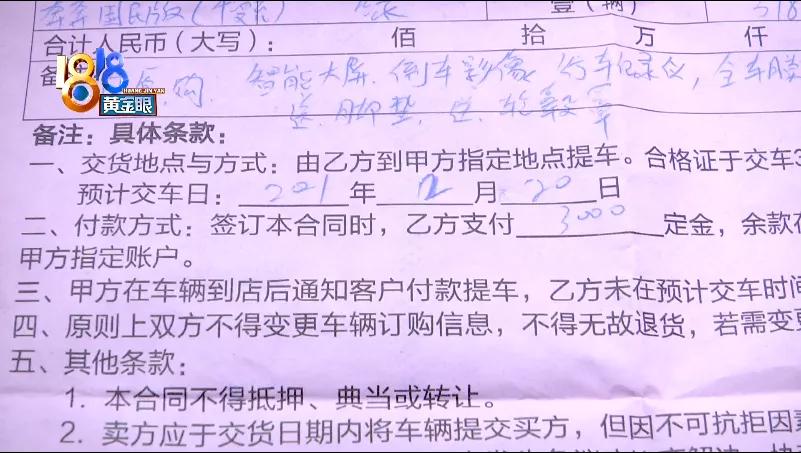 奔奔国民版
壹（辆）
合计人民币（大写）： 佰 拾 万 仟
1818
HUANG JIN YAN
黄金眼
备 购 智能大屏，倒车影像，行车记录仪，全车膜
送脚垫，送轮毂罩
备注：具体条款：
一、交货地点与方式：由乙方到甲方指定地点提车。合格证于交车3
预计交车日：2021年12月20日
二、付款方式：签订本合同时，乙方支付3000定金，余款在
甲方指定账户。
三、甲方在车辆到店后通知客户付款提车，乙方未在预计交车时间
四、原则上双方不得变更车辆订购信息，不得无故退货，若需变更
五、其他条款：
1. 本合同不得抵押、典当或转让。
2. 卖方应于交货日期内将车辆提交买方，但因不可抗拒因素